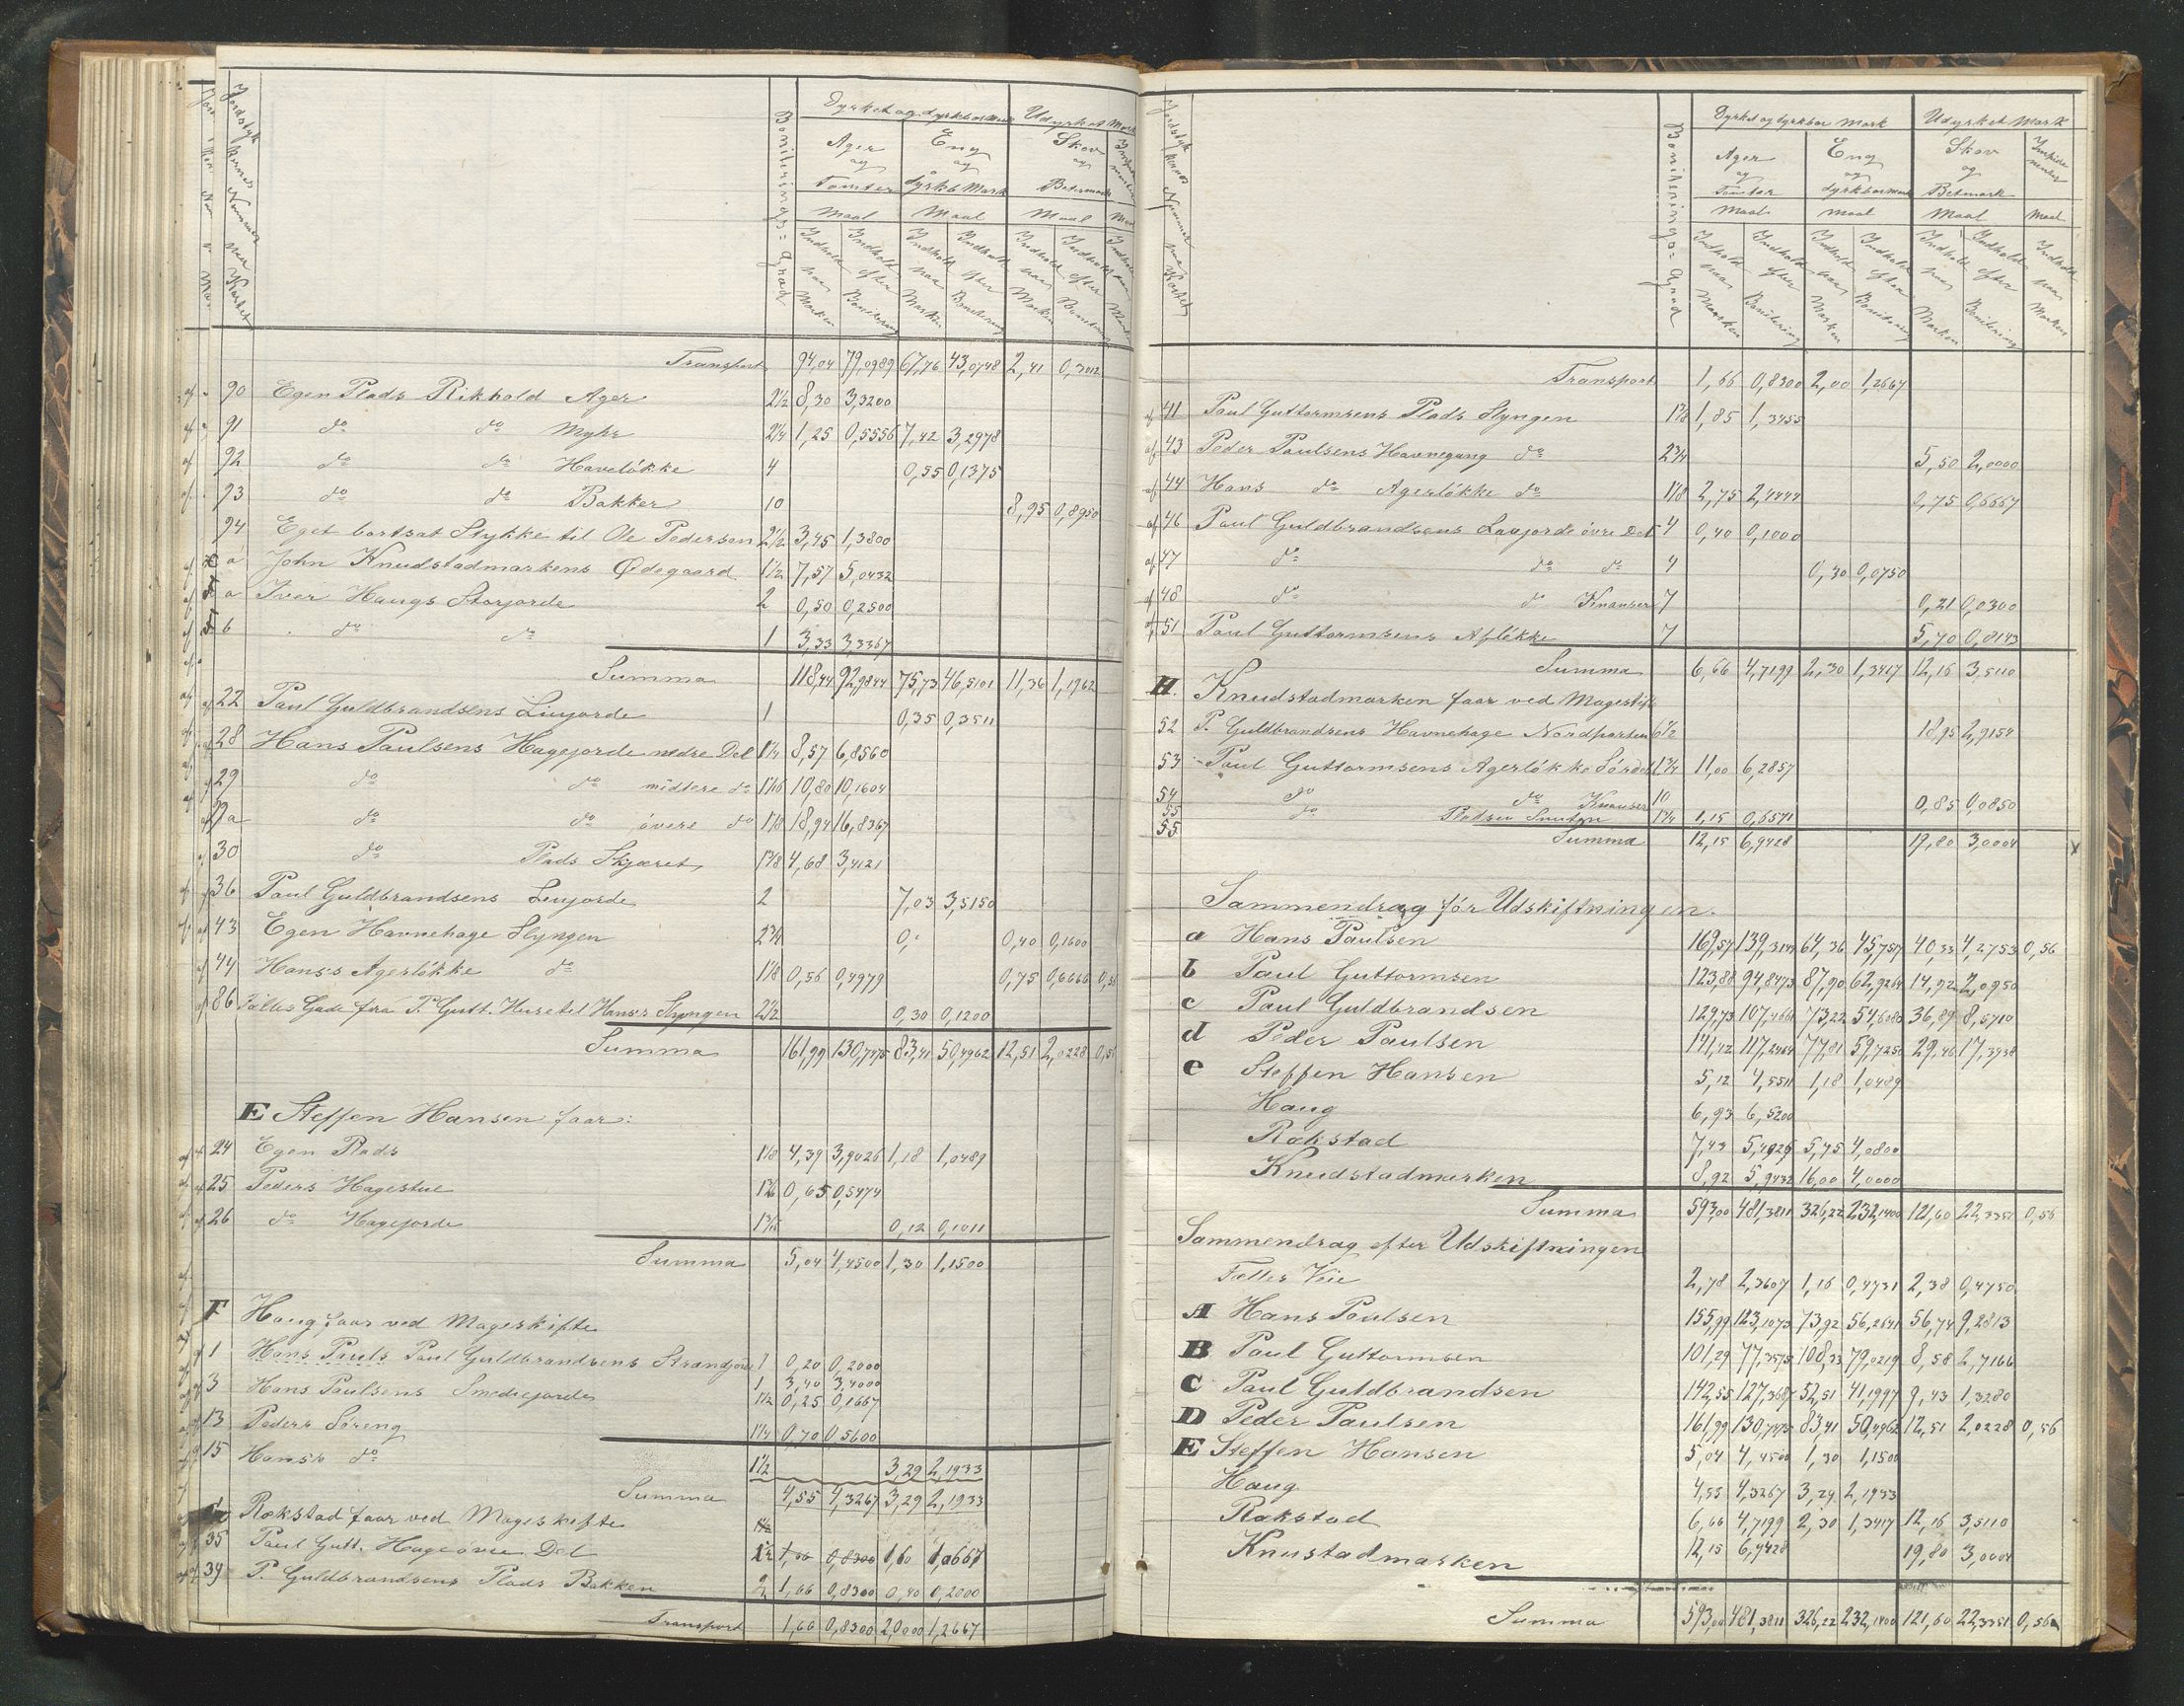 Jordstykkernes Nummer paa Kartet
Boniterings=Grad
Dyrket og dyrkbar Mark Udyrket Mark
Ager og Tomter Eng og dyrkb Mark Skov og Betesmark Impedimenter
Maal Maal Maal Maal
Indhold paa Marken Indhold efter Bonitering Indhold paa Marken Indhold efter Bonitering Indhold paa Marken Indhold efter Bonitering
Transport 94,04 79,0989 67,76 43,0748 2,41 0,3012
90 Egen Plads Rikhold Ager 2½ 8,30 3,3200
91 do do Myhr 2¼ 1,25 0,5556 7,42 3,2978
92 do do Haveløkke 4 0,55 0,1375
93 do do Bakker 10 8,95 0,8950
94 Eget bortsat Stykke til Ole Pedersen 2½ 3,45 1,3800
a John Knudstadmarkens Ødegaard 1½ 7,57 5,0432
a Iver Haugs Storjorde 2 0,50 0,2500
b do do 1 3,33 3,3367
Summa 118,44 92,9844 75,73 46,5101 11,36 1,1962
22 Paul Guldbrandsens Linjorde 1 0,35 0,3511
28 Hans Paulsens Hagejorde nedre Del 1¼ 8,57 6,8560
29 do do midtere do 1 1/16 10,80 10,1604
29a do do øvere do 1⅛ 18,94 16,8367
30 do Plads Skjæret 1⅜ 4,68 3,4121
36 Paul Guldbrandsens Leujorde 2 7,03 3,5150
43 Egen Havnehage Slyngen 2¾ 0, 0,40 0,1600
44 Hans's Agerløkke do 1⅛ 0,56 0,4979 0,75 0,6666
86 Fælles Gade fra P. Gutt. Huse til Hans's Slyngen 2½ 0,30 0,1200
Summa 161,99 130,7475 83,41 50,4962 12,51 2,0228
E Steffen Hansen faar:
24 Egen Plads 1⅛ 4,39 3,9026 1,18 1,0489
25 Peders Hagestue 0,65 0,5474
26 do Hagejorde 0,12 0,1011
Summa 5,04 4,4500 1,30 1,1500
F Haug faar ved Mageskifte
1 Hans Pauls Paul Guldbrandsens Strandjorde 1 0,20 0,2000
3 Hans Paulsens Smediejorde 1 3,40 3,4000
1½ 0,25 0,1667
13 Peders Søreng 1¼ 0,70 0,5600
15 Hans's do 1½ 3,29 2,1933
Summa 4,55 4,3267 3,29 2,1933
Rokstad faar ved Mageskifte
35 Paul Gutt. Hage øvre Del 1½ 1,66 0,8300 1,60 1,0667
39 P. Guldbrandsens Plads Bakken 2 1,66 0,8300 0,40 0,2000
Transport 1,66 0,8300 2,000 1,2667
Jordstykkernes Nummer paa Kartet
Boniterings=Grad
Dyrket og dyrkbar Mark Udyrket Mark
Ager og Tomter Eng og dyrkbar Mark Skov og Betmark Impedimenter
Maal Maal Maal Maal
Indhold paa Marken Indhold efter Bonitering Indhold paa Marken Indhold efter Bonitering Indhold paa Marken Indhold efter Bonitering Indhold paa Marken
Transport 1,66 0,8300 2,00 1,2667
41 Paul Guttormsens Plads Slyngen 1⅜ 1,85 1,3455
43 Peder Paulsens Havnegang do 2¾ 5,50 2,0000
44 Hans do Agerløkke do 1⅛ 2,75 2,4444 0,75 0,6667
46 Paul Guldbrandsens Laujorde øvre Del 4 0,40 0,1000
47 do do do 4 0,30 0,0750
48 do do Knauser 7 0,21 0,0300
51 Paul Guttormsens Afløkke 7 5,70 0,8143
Summa 6,66 4,7199 2,30 1,3417 12,16 3,5110
H. Knudstadmarken faar ved Magesk
52 P. Guldbrandsens Havnehage Nordparten 6½ 18,95 2,9154
53 Paul Guttormsens Agerløkke Sørdel 1¾ 11,00 6,2857
54 do do Knauser 10 0,85 0,0850
55 do Pladsen Snuten 1¾ 1,15 0,6571
55 Summa 12,15 6,9428 19,80 3,0004
Sammendrag før Udskiftningen.
a Hans Paulsen 169,57 139,3143 64,36 45,7517 40,33 4,2753 0,56
b Paul Guttormsen 123,88 94,8473 87,90 62,9264 14,92 2,0950
c Paul Guldbrandsen 129,73 107,4661 73,22 54,6080 36,89 8,5710
d Peder Paulsen 141,42 117,2464 77,81 59,7250 29,46 17,3938
e Steffen Hansen 5,12 4,5511 1,18 1,0489
Haug 6,93 6,5200
Rokstad 7,43 5,4926 5,75 4,0800
Knudstadmarken 8,92 5,9432 16,00 4,0000
Summa 593,00 481,3811 326,22 232,1400 121,60 22,3351 0,56
Sammendrag efter Udskiftningen
Fælles Veie 2,78 2,3607 1,16 0,4731 2,38 0,4750
A Hans Paulsen 155,99 123,1073 73,92 56,2641 56,74 9,2813
B Paul Guttormsen 101,29 77,3575 108,33 79,0219 8,58 2,7166
C Paul Guldbrandsen 142,55 127,3687 52,51 41,1997 9,43 1,3280
D Peder Paulsen 161,99 130,7475 83,41 50,4962 12,51 2,0228 0,56
E Steffen Hansen 5,04 4,4500 1,30 1,1500
Haug 4,55 4,3267 3,29 2,1933
Rokstad 6,66 4,7199 2,30 1,3417 12,16 3,5110
Knustadmarken 12,15 6,9428 19,80 3,0004
Summa 593,00 481,3811 326,22 232,1400 121,60 22,3351 0,56